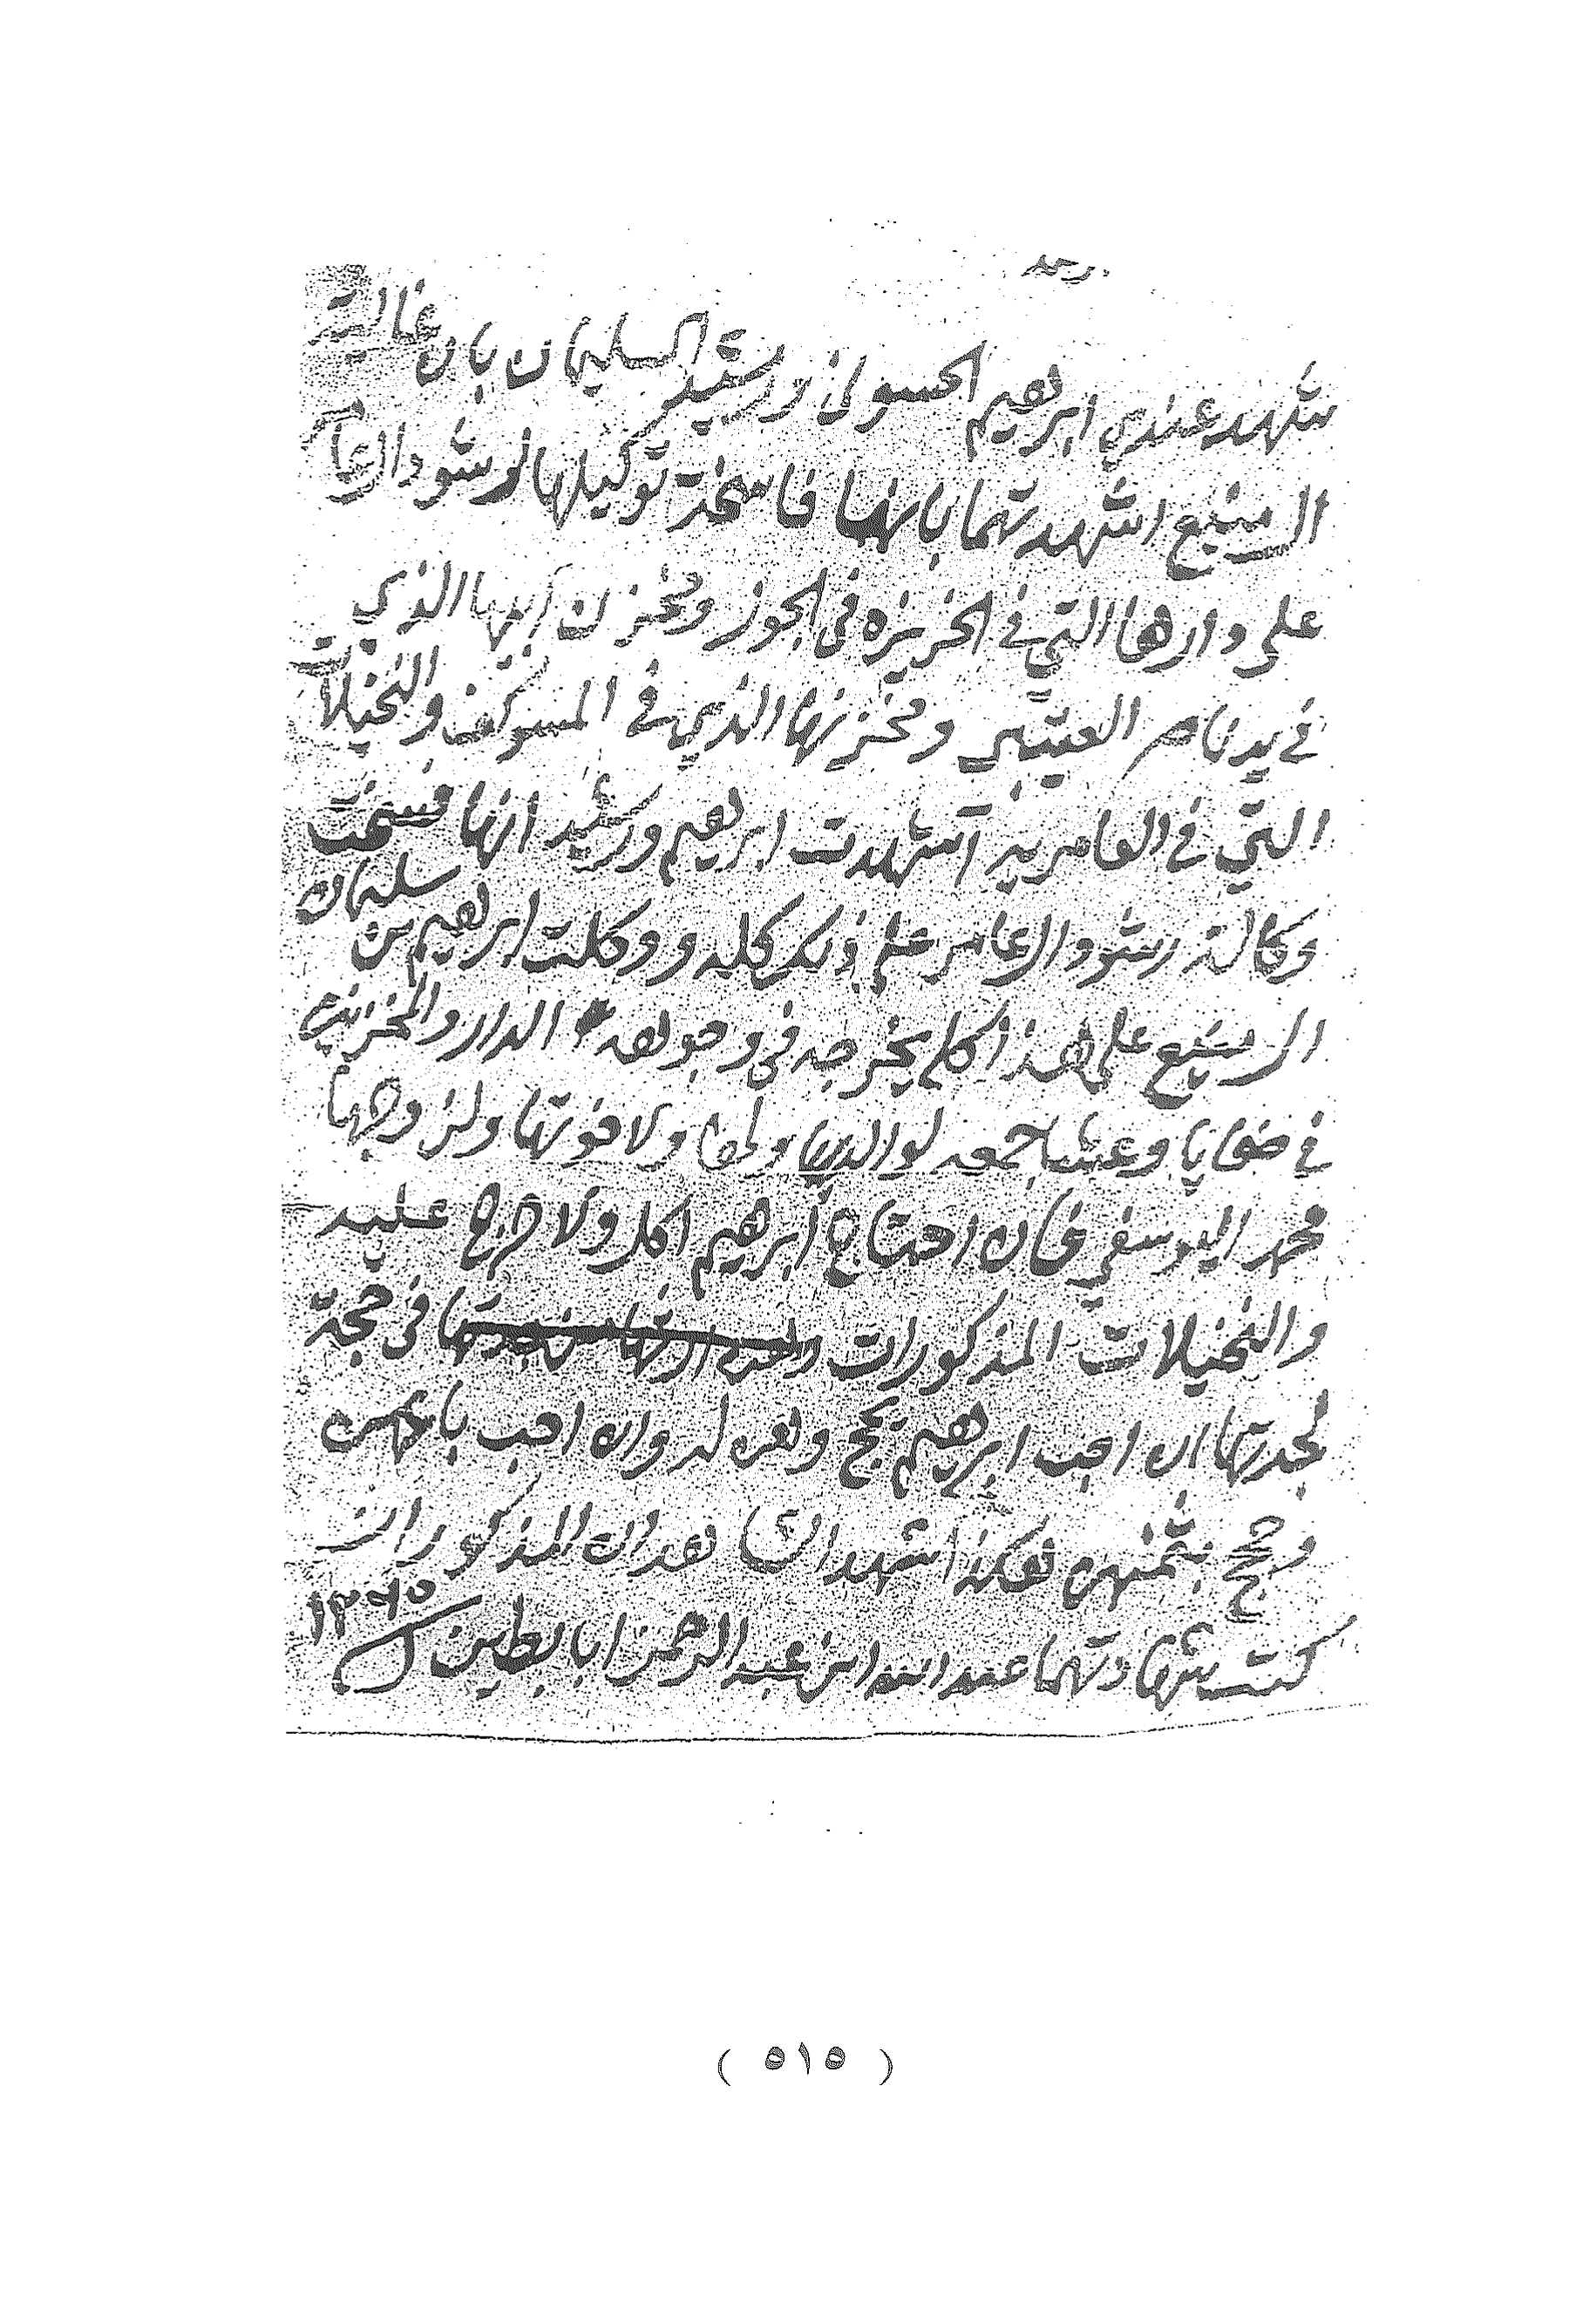 وحده
شهد عندي ابرهيم الحسون ورشيد السليمان بان غالية
الربيع اشهدتهما بانها فاسخة توكيلها لرشود العامر
على دارها التي في الخريزه في الجوز ومخزن ابيها الذي
في يد ناصر العتيبي ومخزنها الذي في المسوكف والنخيلات
التي في العامرية اشهدت ابرهيم ورشيد انها فسخت
وكالة رشود العامر على ذلك كله ووكلت ابرهيم بن سليمان
الربيع على هذا كله يخرجه في وجوهه الدار والمخزينين
في ضحايا وعشا جمعه لوالديها ولها ولاخوتها ولزوجها
محمد اليوسفي فان احتاج ابرهيم اكل ولا حرج عليه
والنخيلات المذكورات في حجة
لجدتها ان احب ابرهيم يحج وهن له وان احب باعهن
وحجج بثمنهن هكذا اشهدت هذان المذكوران
كتب شهادتهما عبد الله ابن عبد الرحمن ابا بطين ١٢٩٥
( ٥١٥ )